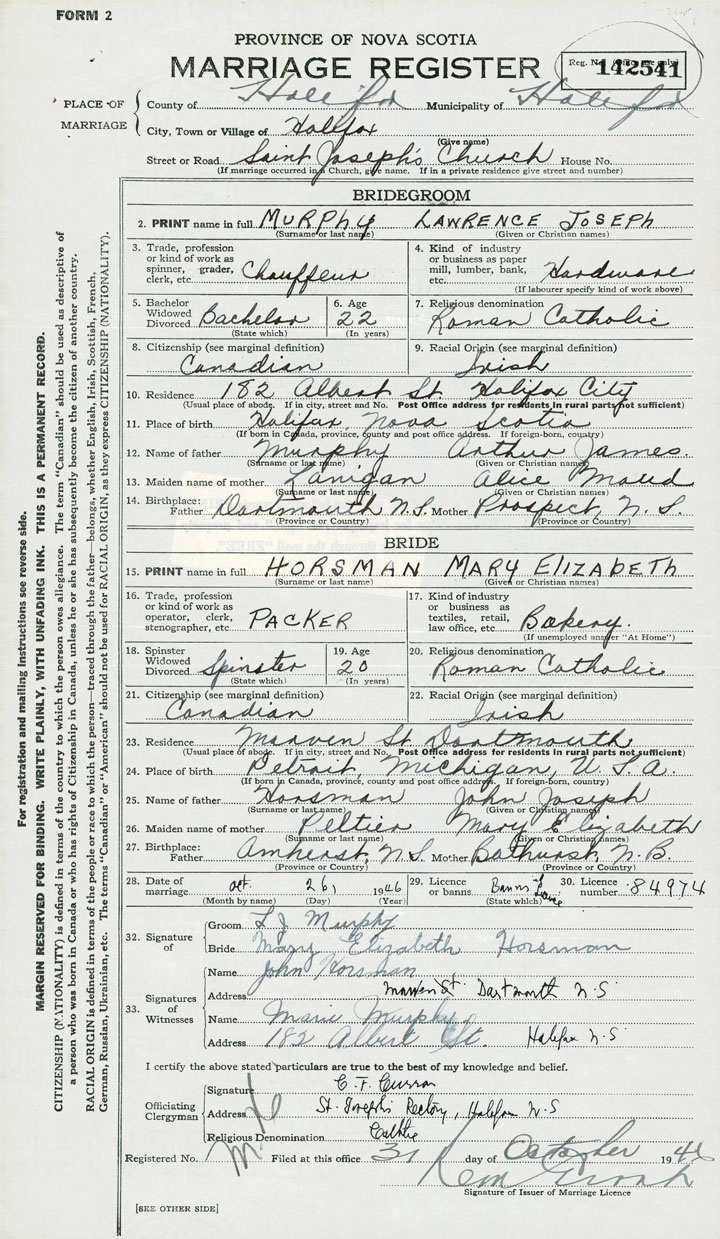 FORM 2
PROVINCE OF NOVA SCOTIA
MARRIAGE REGISTER
Reg. No. (Office use only)
142541
PLACE OF MARRIAGE
County of Halifax Municipality of Halifax
City, Town or Village of Halifax
(Give name)
Street or Road Saint Joseph's Church House No.
(If marriage occurred in a Church, give name. If in a private residence give street and number)
BRIDEGROOM
2. PRINT name in full MURPHY LAWRENCE JOSEPH
(Surname or last name) (Given or Christian names)
3. Trade, profession or kind of work as spinner, grader, clerk, etc. Chauffeur
4. Kind of industry or business as paper mill, lumber, bank, etc. Hardware
(If labourer specify kind of work above)
5. Bachelor Widowed Divorced Bachelor
(State which)
6. Age 22
(In years)
7. Religious denomination
Roman Catholic
8. Citizenship (see marginal definition)
Canadian
9. Racial Origin (see marginal definition)
Irish
10. Residence 182 Albert St. Halifax City
(Usual place of abode. If in city, street and No. Post Office address for residents in rural parts not sufficient)
11. Place of birth Halifax, Nova Scotia
(If born in Canada, province, county and post office address. If foreign-born, country)
12. Name of father Murphy Arthur James.
(Surname or last name) (Given or Christian names)
13. Maiden name of mother Lanigan Alice Maud
(Surname or last name) (Given or Christian names)
14. Birthplace: Father Dartmouth N.S. Mother Prospect, N.S.
(Province or Country) (Province or Country)
BRIDE
15. PRINT name in full HORSMAN MARY ELIZABETH
(Surname or last name) (Given or Christian names)
16. Trade, profession or kind of work as operator, clerk, stenographer, etc. PACKER
17. Kind of industry or business as textiles, retail, law office, etc. Bakery.
(If unemployed answer "At Home")
18. Spinster Widowed Divorced Spinster
(State which)
19. Age 20
(In years)
20. Religious denomination
Roman Catholic
21. Citizenship (see marginal definition)
Canadian
22. Racial Origin (see marginal definition)
Irish
23. Residence Marven St. Dartmouth
(Usual place of abode. If in city, street and No. Post Office address for residents in rural parts not sufficient)
24. Place of birth Detroit, Michigan, U.S.A.
(If born in Canada, province, county and post office address. If foreign-born, country)
25. Name of father Horsman John Joseph
(Surname or last name) (Given or Christian names)
26. Maiden name of mother Peltier Mary Elizabeth
(Surname or last name) (Given or Christian names)
27. Birthplace: Father Amherst, N.S. Mother Bathurst, N.B.
(Province or Country) (Province or Country)
28. Date of marriage Oct. 26, 1946
(Month by name) (Day) (Year)
29. Licence or banns Banns &
(State which)
30. Licence number 84974
32. Signature of
Groom L J Murphy
Bride Mary Elizabeth Horsman
33. Signatures of Witnesses
Name John Horsman
Address Marven St. Dartmouth N.S.
Name Marie Murphy
Address 182 Albert St. Halifax N.S.
I certify the above stated particulars are true to the best of my knowledge and belief.
Officiating Clergyman
Signature C. F. Curran
Address St. Joseph's Rectory, Halifax N.S
Religious Denomination
Registered No. Filed at this office 31 day of October 1946
Signature of Issuer of Marriage Licence
[SEE OTHER SIDE]
For registration and mailing instructions see reverse side.
MARGIN RESERVED FOR BINDING. WRITE PLAINLY, WITH UNFADING INK. THIS IS A PERMANENT RECORD.
CITIZENSHIP (NATIONALITY) is defined in terms of the country to which the person owes allegiance. The term "Canadian" should be used as descriptive of
a person who was born in Canada or who has rights of Citizenship in Canada, unless he or she has subsequently become the citizen of another country.
RACIAL ORIGIN is defined in terms of the people or race to which the person—traced through the father—belongs, whether English, Irish, Scottish, French,
German, Russian, Ukrainian, etc. The terms "Canadian" or "American" should not be used for RACIAL ORIGIN, as they express CITIZENSHIP (NATIONALITY).